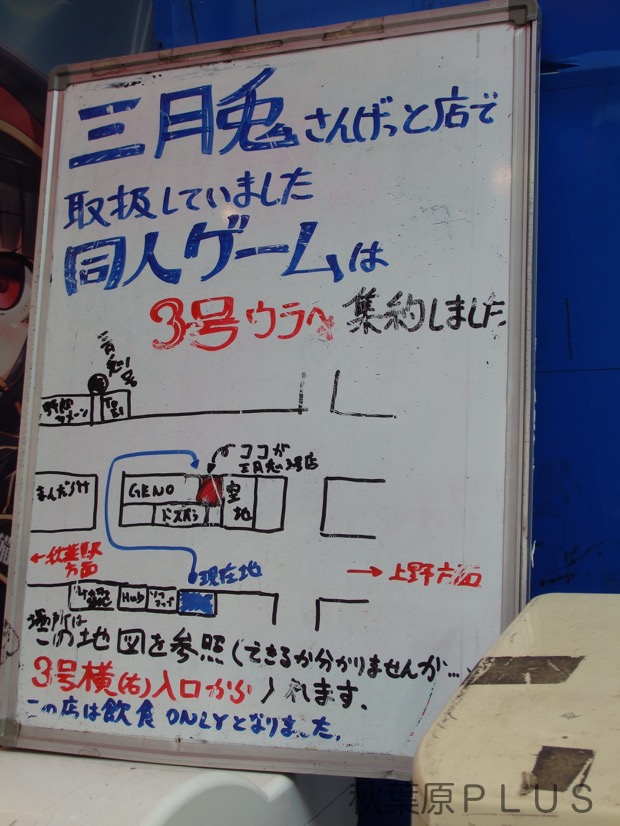 三月兎さんげっと店で
取扱していました
同人ゲームは
3号ウラへ 集約しました
ココが
三月兎3号店
まんだらけ
GENO
空地
ドスパラ
←秋葉駅
方面
現在地
→上野方面
Hub
ソフマップ
場所は
この地図を参照(できるか分かりませんが…)
3号横(右)入口から入れます.
この店は飲食ONLYとなりました.
秋葉原PLUS